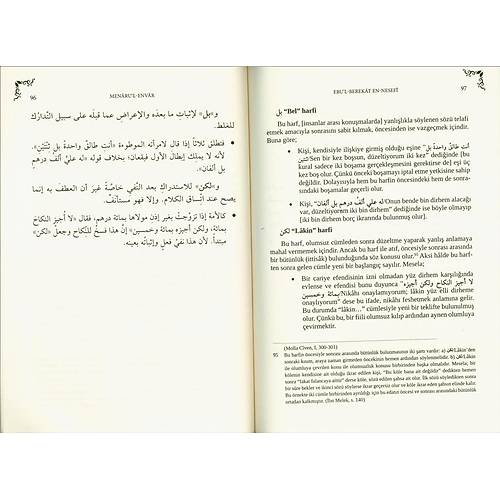 96
MENÂRU'L-ENVÂR
و«بل» لإثبات ما بعده والإعراض عما قبله على سبيل التدارك
للغلط.
• فتطلق ثلاثا إذا قال لامرأته الموطوءة «أنت طالق واحدة بل ثنتين»،
لأنه لا يملك إبطال الأول فيقعان؛ بخلاف قوله «له علي ألف درهم
بل ألفان».
و«لكن» للاستدراك بعد النفي خاصة غير أن العطف به إنما
يصح عند اتساق الكلام. وإلا فهو مستأنف
• كالأمة إذا تزوجت بغير إذن مولاها بمائة درهم، فقال «لا أجيز النكاح
بمائة، ولكن أجيزه بمائة وخمسين» إن هذا فسخ للنكاح وجعل «لكن»
مبتدأ. لأن هذا نفي فعل وإثباته بعينه.
EBU'L-BEREKÂT EN-NESEFÎ
97
بل "Bel" harfi
Bu harf, [insanlar arası konuşmalarda] yanlışlıkla söylenen sözü telafi
etmek amacıyla sonrasını sabit kılmak, öncesinden ise vazgeçmek içindir.
Buna göre;
• Kişi, kendisiyle ilişkiye girmiş olduğu eşine "أنت طالق واحدة بل
ثنتين/Sen bir kez boşsun, düzeltiyorum iki kez" dediğinde [bu
kural sadece iki boşama gerçekleşmesini gerektirse de] eşi üç kez
boş olur. Çünkü önceki boşamayı iptal etme yetkisine sahip
değildir. Dolayısıyla hem bu harfin öncesindeki hem de sonra-
sındaki boşamalar geçerli olur.
• Kişi, "له علي ألف درهم بل ألفان/Onun bende bin dirhem alacağı
var, düzeltiyorum iki bin dirhem" dediğinde ise böyle olmaz
[iki bin dirhem borç ikrarında bulunmuş olur].
لكن "Lâkin" harfi
Bu harf, olumsuz cümleden sonra düzeltme yaparak yanlış anlamaya
mahal vermemek içindir. Ancak bu harf ile atıf, öncesiyle sonrası arasında
bir bütünlük (ittisâk) bulunduğunda söz konusu olur.⁹⁵ Aksi hâlde bu harf-
ten sonra gelen cümle yeni bir başlangıç sayılır. Mesela;
• Bir cariye efendisinin izni olmadan yüz dirhem karşılığında
evlense ve efendisi bunu duyunca "لا أجيز النكاح ولكن أجيزه
بمائة وخمسين/Nikâhı onaylamıyorum; lâkin yüz elli dirheme
onaylıyorum" dese bu ifade, nikâhı feshetmek anlamına gelir.
Bu durumda "lâkin…" cümlesiyle yeni bir teklifte bulunulmuş
olur. Çünkü bu, bir fiili olumsuz kılıp ardından aynen olumluya
çevirmektir.
(Molla Cîven, I, 300-301)
95 Bu harfin öncesiyle sonrası arasında bütünlük bulunmasının iki şartı vardır: a) لكن/Lâkin'den
sonraki kısım, araya zaman girmeden öncekinin hemen ardından söylenmelidir. b) لكن/Lâkin
ile olumluya çevrilen konu ile olumsuzluk konusu birbirinden başka olmalıdır. Mesela; bir
kölenin kendisine ait olduğu ikrar edilen kişi, "Bu köle bana ait değildir" dedikten hemen
sonra "lakat falancaya aittir" derse köle, sözü edilen şahsa ait olur. İlk sözü söyledikten sonra
bir süre bekler ve ikinci sözü ardından söylerse ikrar geçersiz olur ve köle ikrar edenin elinde kalır.
Bu örnekte iki cümle birbirinden ayrıldığı için bu edatın öncesi ve sonrası arasındaki bütünlük
ortadan kalkmıştır. (İbn Melek, s. 140)